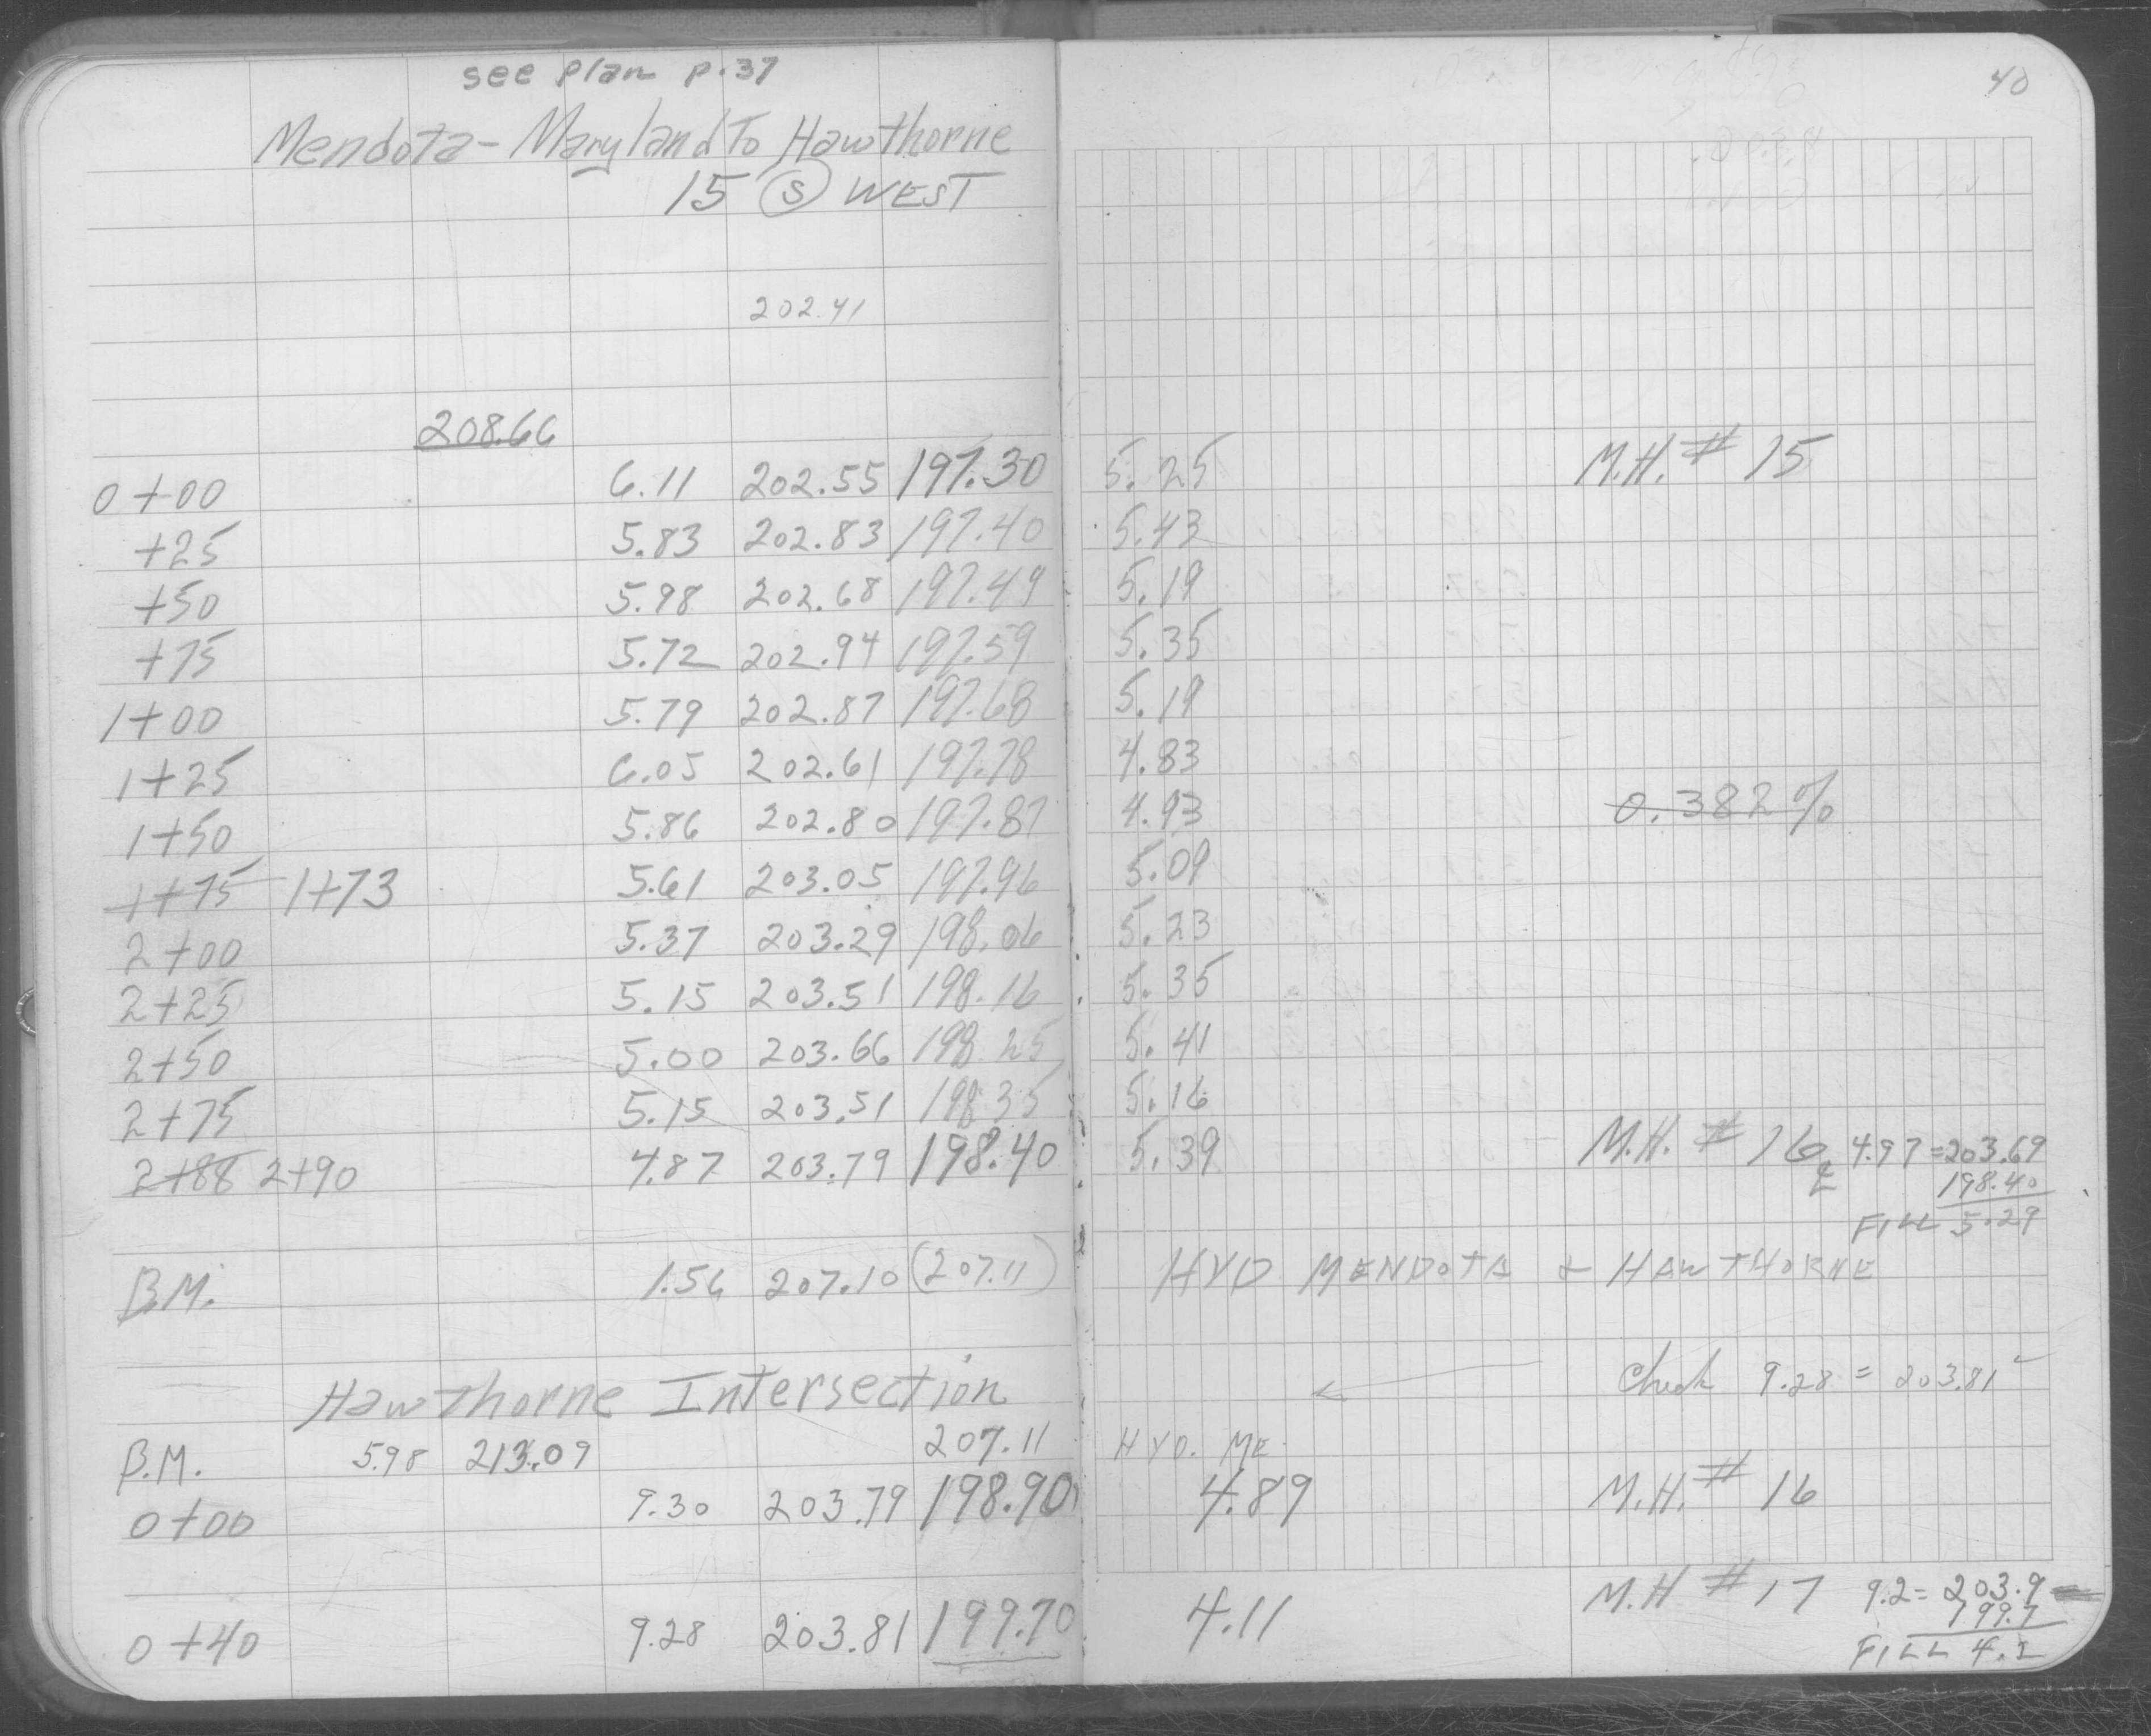 see plan p.37
40
Mendota - Maryland To Hawthorne
15 (S) WEST
202.41
208.66
0+00 6.11 202.55 197.30 5.25 M.H. # 15
+25 5.83 202.83 197.40 5.43
+50 5.98 202.68 197.49 5.19
+75 5.72 202.94 197.59 5.35
1+00 5.79 202.87 197.68 5.19
1+25 6.05 202.61 197.78 4.83
1+50 5.86 202.80 197.87 4.93 0.382%
1+75 1+73 5.61 203.05 197.96 5.09
2+00 5.37 203.29 198.06 5.23
2+25 5.15 203.51 198.16 5.35
2+50 5.00 203.66 198.25 5.41
2+75 5.15 203.51 198.35 5.16
2+88 2+90 4.87 203.79 198.40 5.39 M.H. # 16 ℄ 4.97 = 203.69
198.40
FILL 5.29
B.M. 1.56 207.10 (207.11) HYD MENDOTA & HAWTHORNE
Check 9.28 = 203.81
Hawthorne Intersection
B.M. 5.98 213.09 207.11 HYD. ME
0+00 9.30 203.79 198.90 4.89 M.H. # 16
0+40 9.28 203.81 199.70 4.11 M.H # 17 9.2 = 203.9
199.7
FILL 4.2